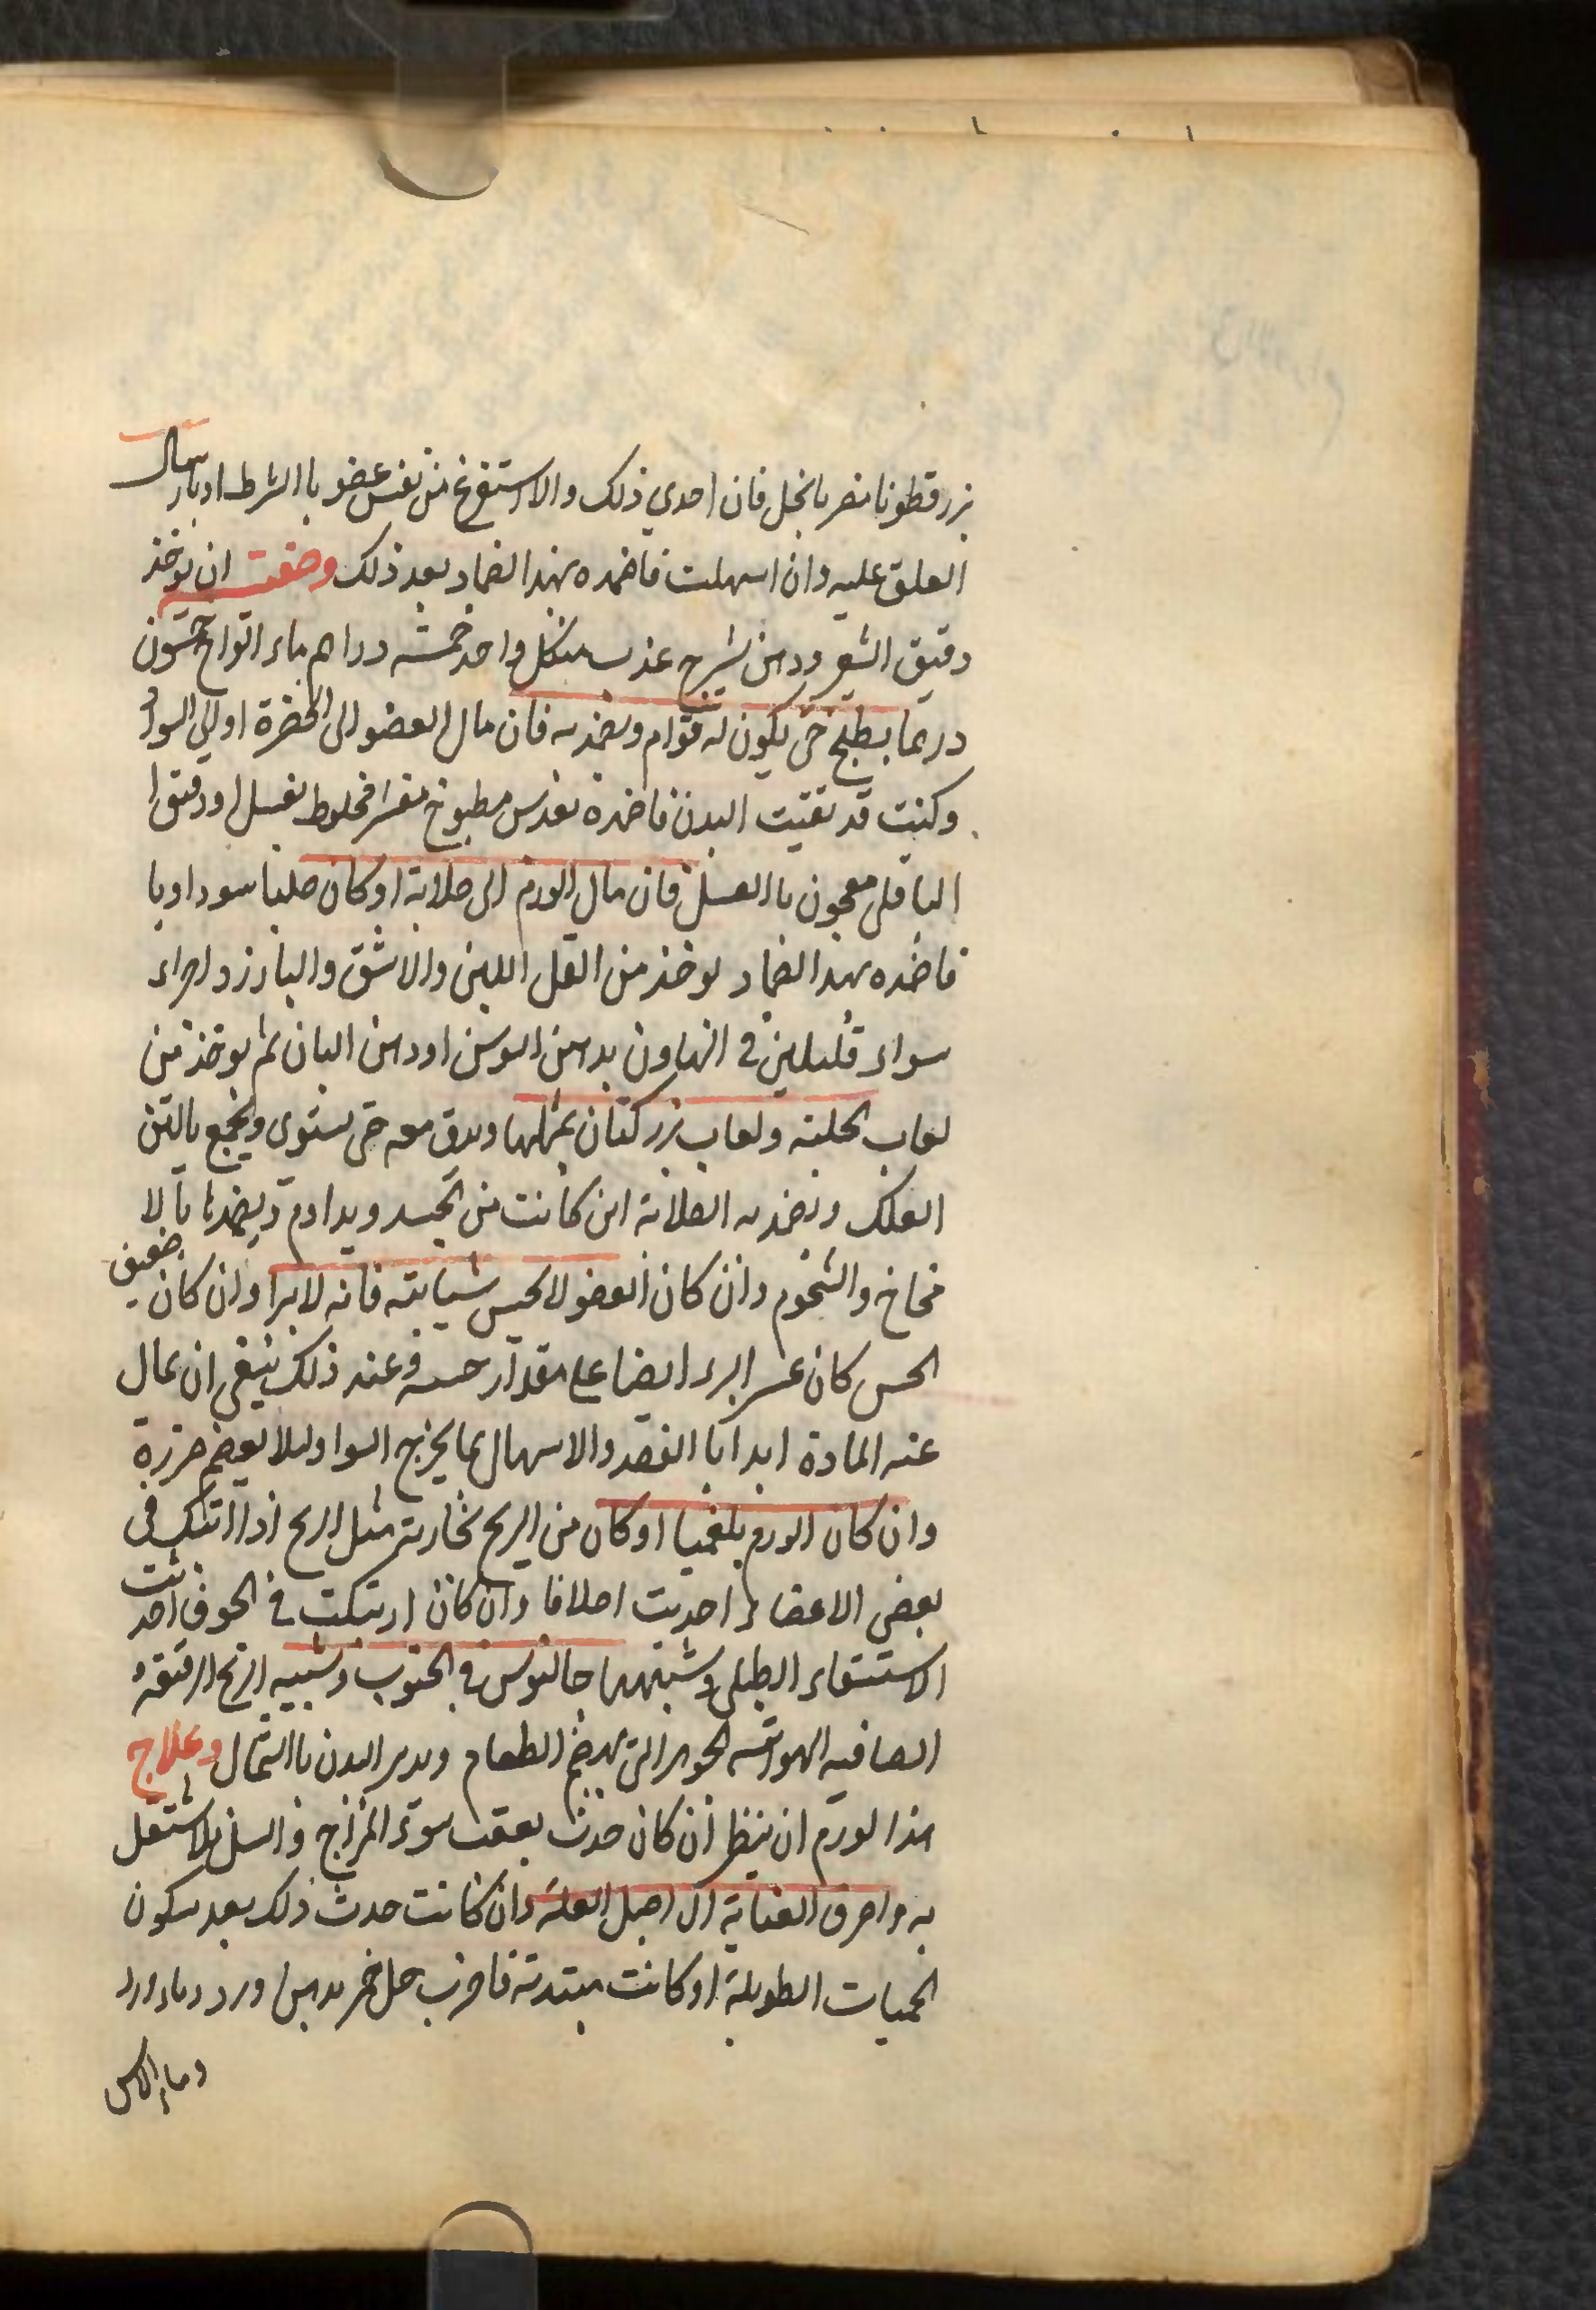 بزر قطونا منصر بالخل فان احدي ذلك والاستفرغ من نفس عضو باالشرط او بارسال
العلق عليه وان اسهلت فاضمده بهذا الضماد بعد ذلك وصفت ان يوخذ
دقيق الشعير ودهن شيرج عذب من كل واحد خمسة دراهم ماء القراح خمسون
درهما يطبخ حتى يكون له قوام ويضمد به فان مال العضو الى الخضرة او الي السواد
وكنت قد نقيت البدن فاضمده بعدس مطبوخ مقشر مخلوط بعسل او دقيق
الباقلى معجون باالعسل فان مال الورم الى صلابة او كان صلبا سوداويا
فاضمده بهذا الضماد يوخذ من المقل اللين والاشق والبارزد اجزاء
سواء قليلين في الهاون بدهن السوسن او دهن البان ثم يوخذ من
لعاب الحلبة ولعاب بزر كتان بمثلها ويدق معه حتى يستوى ويجمع بالتين
العلك ويضمد به الصلابة اين كانت من الجسد ويداوم ويضمدها بالا
مخاخ والشحوم وان كان العضو لا يحس شيا بته فانه لا يبرا وان كان ضعيف
الحس كان عسر البرء ايضا على مقدار حسه وعند ذلك ينبغي ان يمال
عنه المادة ابدا باالفصد والاسهال بما يخرج السوا وليلا يعظم ضررة
وان كان الورم بلغميا او كان من الريح بخارية مثل الريح اذا اتبك في
بعض الاعضاء احدثت اصلافا وان كان ارتبكت في الجوف احدثت
الاستسقاء الطبلي وشبهها جالنوس في الجنوب وشبيه الريح الرقيقة
الصافيه الهوائية الجوهر التي تهضم الطعام ويدبر البدن باالشمال وعلاج
هذا لورم ان ينظر ان كان حدث بعقب سوء المزاج والسل فلا تشتغل
به واصرف العناية الى اصل العلة وان كانت حدث ذلك بعد سكون
الحميات الطويلة او كانت مبتدئه فاضرب خل خمر بدهن ورد وماء ورد
وماء الاس